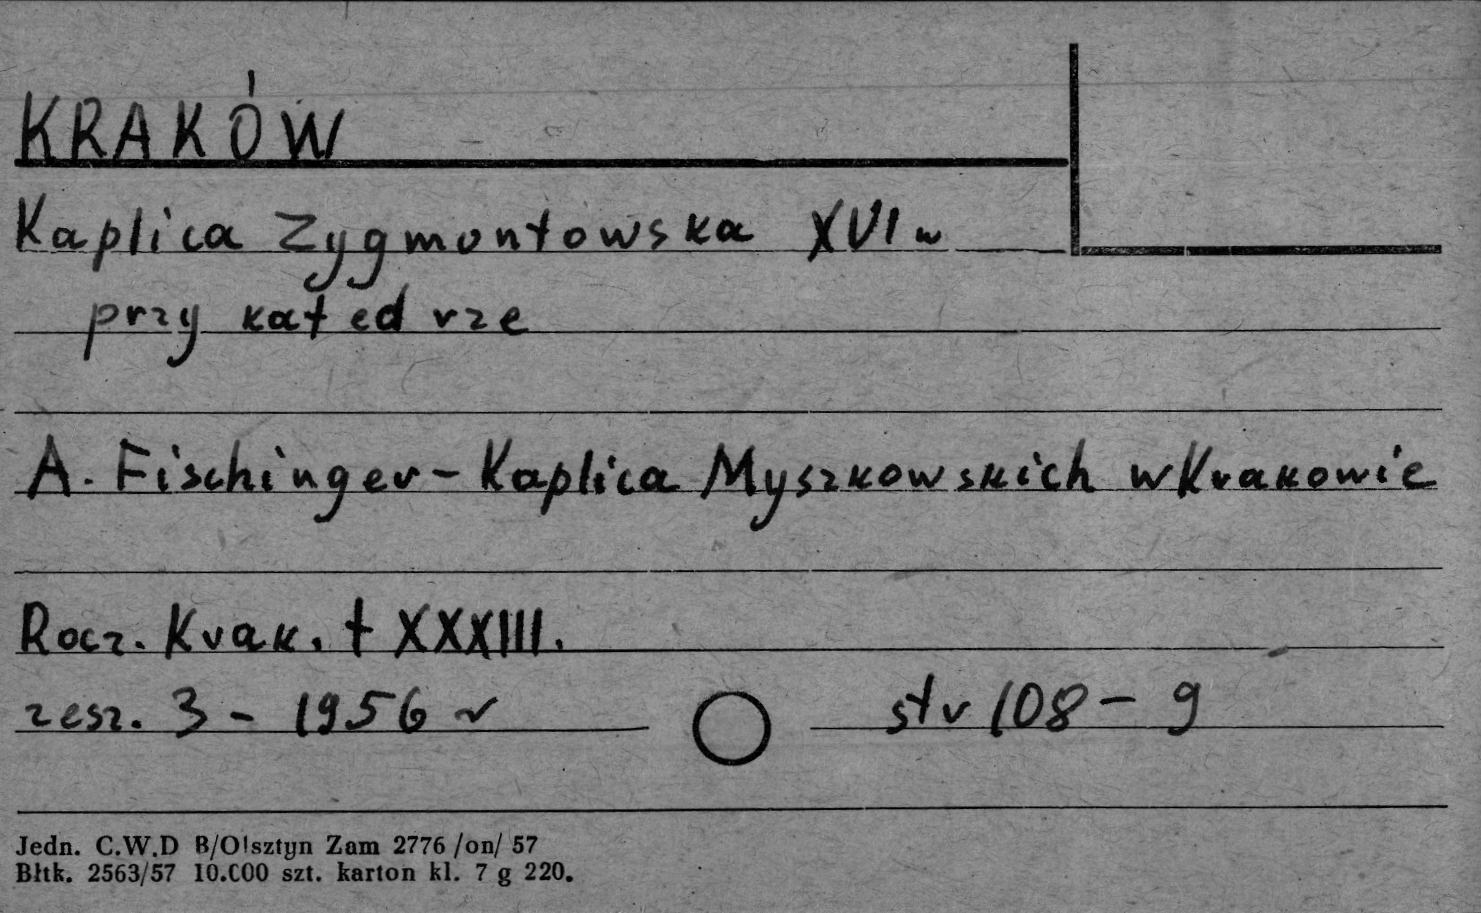 KRAKÓW
Kaplica Zygmontowska XVI w
przy katedrze
A. Fischinger - Kaplica Myszkowskich w Krakowie
Rocz. Krak. t XXXIII.
zesz. 3 - 1956 r
str 108 - 9
Jedn. C.W.D B/Olsztyn Zam 2776 /on/ 57
Błtk. 2563/57 10.000 szt. karton kl. 7 g 220.